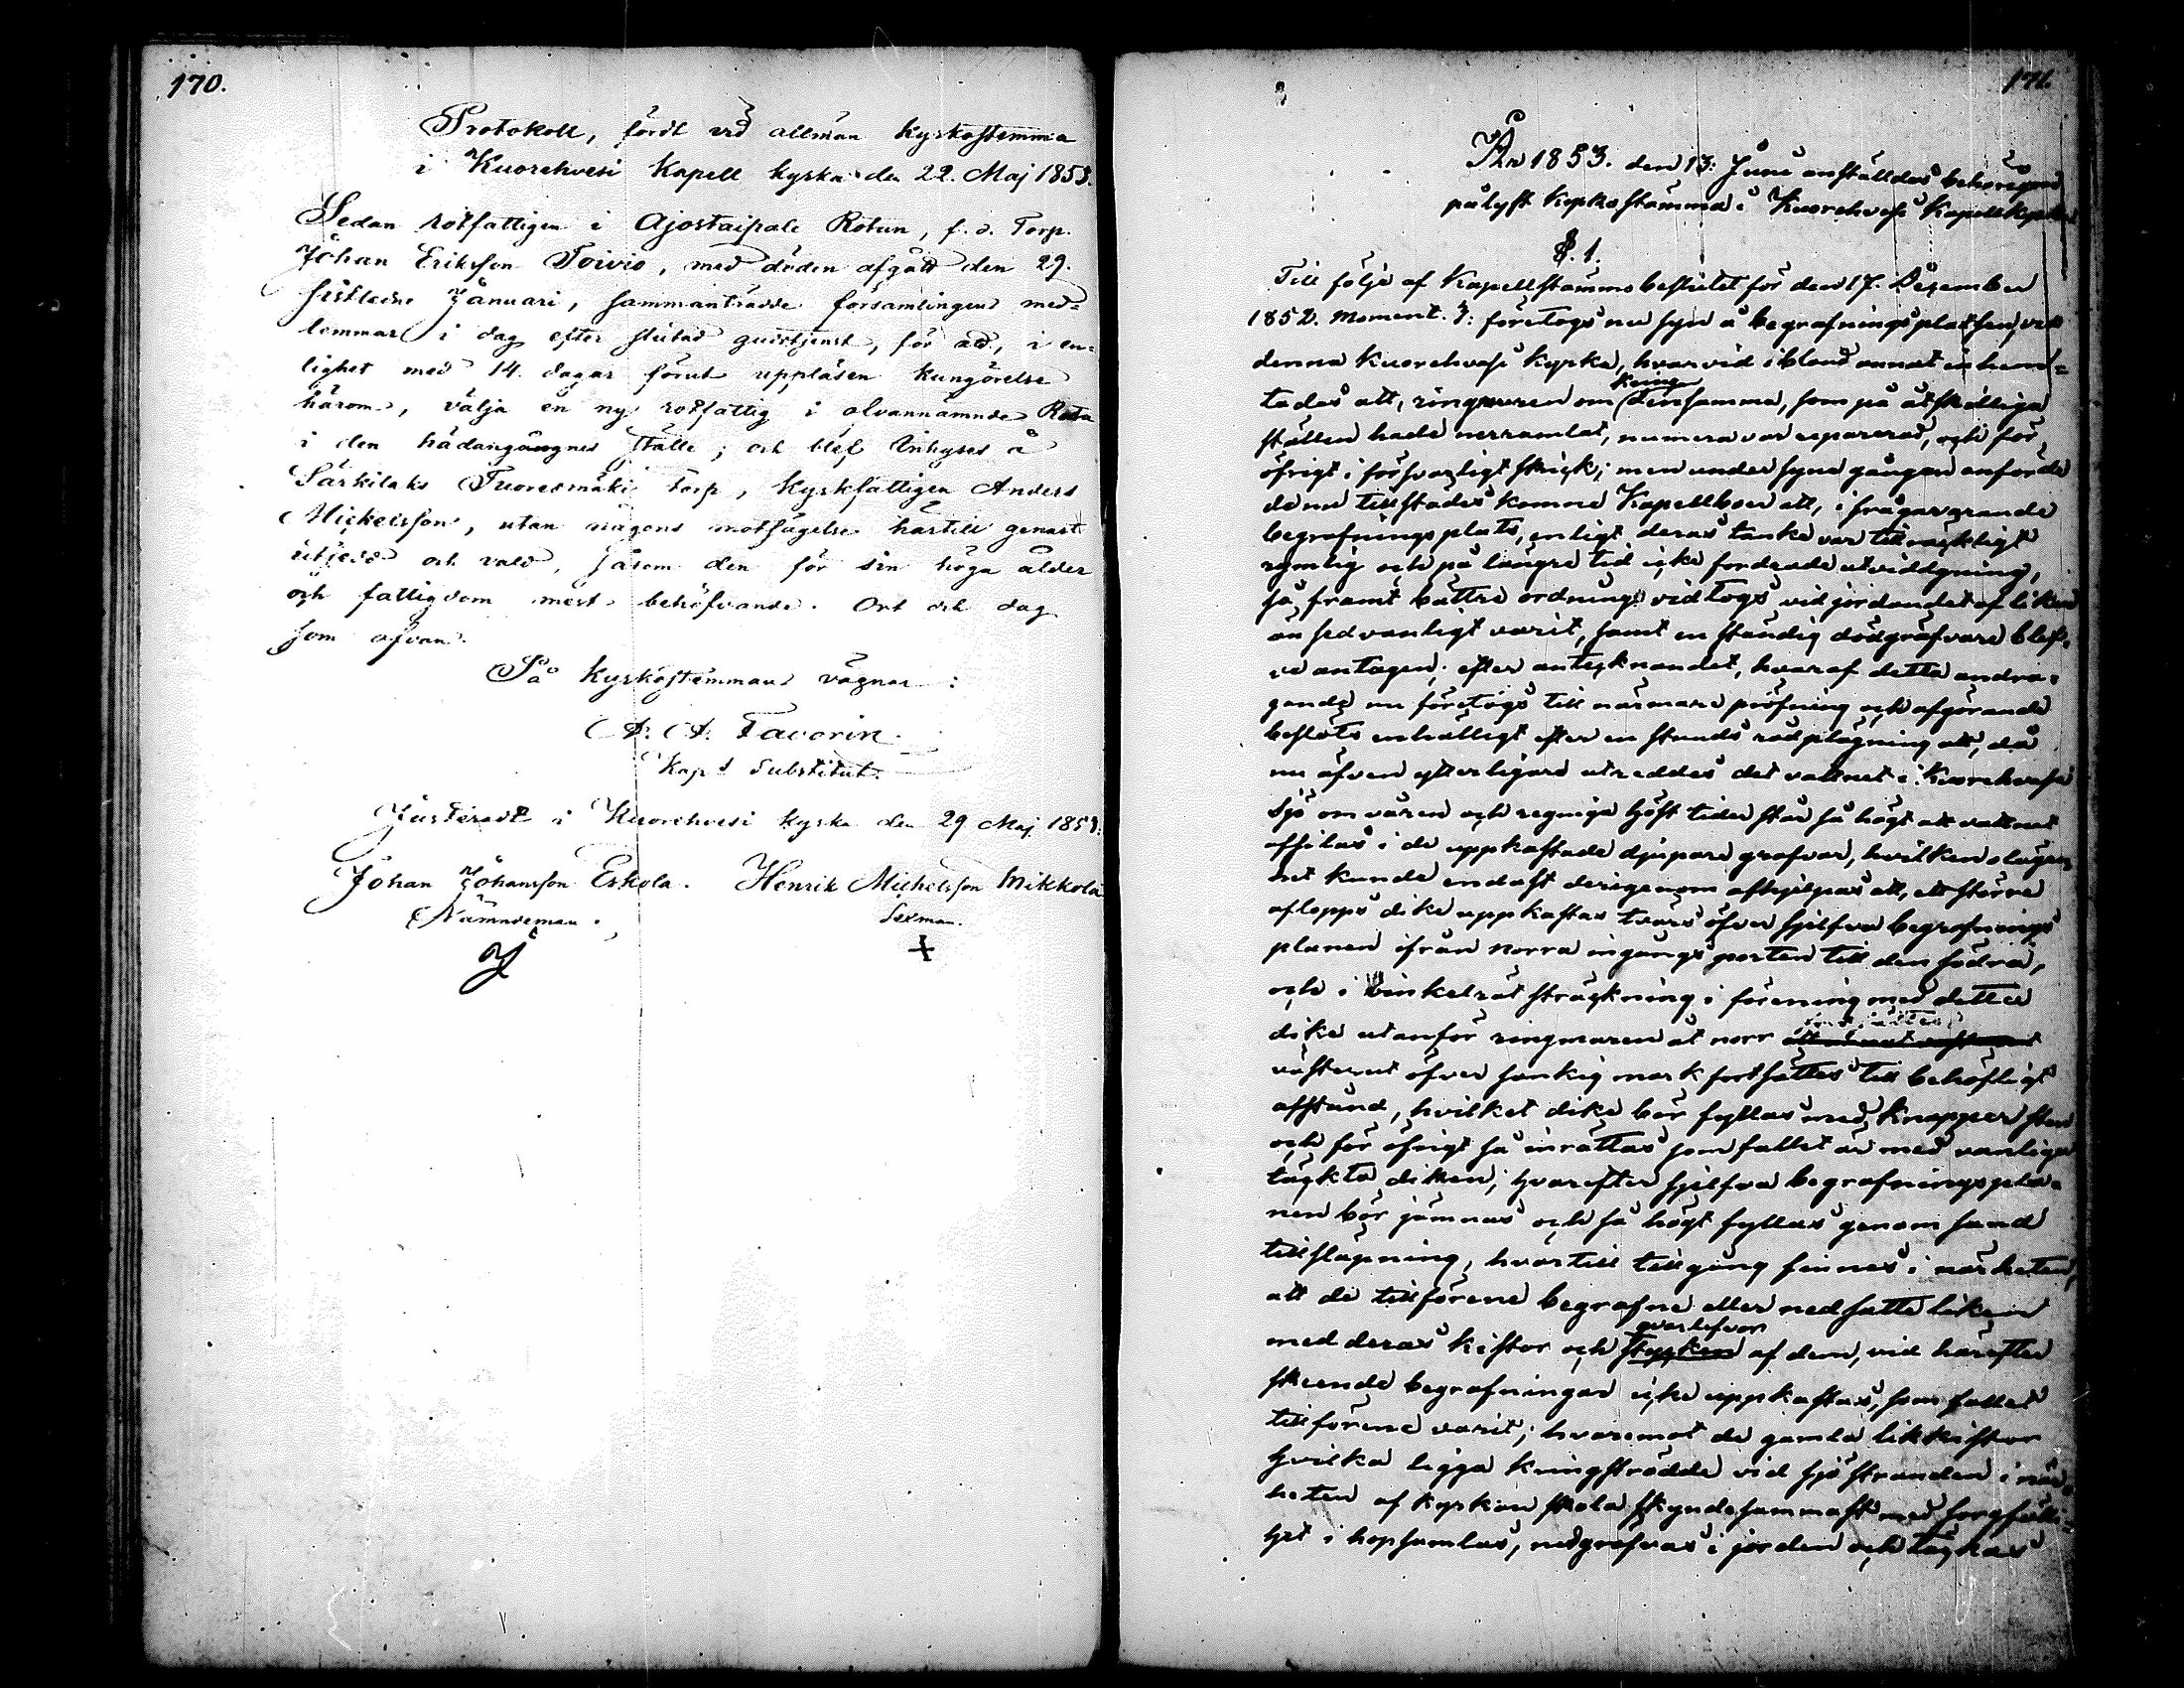 170.
Protokoll, fördt vid allmän kyrkostemma
i Kuorehvesi Kapell kyrka den 22. Maj 1853.
Sedan rotfattigen i Ajostaipale Rotan, f. d. Torp.
Johan Eriksson Toivio, med döden afgått den 29.
sistledne Januari, sammanträdde församlingens med-
lemmar i dag efter slutad gudstjenst, för att, i en-
lighet med 14. dagar förut uppläsen kungörelse
härom, välja en ny rotfattig i ofvannämnde Rota
i den hädangångnes ställe; och blef Inhyses å
Särkilaks Tuoresmäki Torp, kyrkfattigen Anders
Mickelsson, utan någons motsägelse härtill genast
utsedd och vald, såsom den för sin höga ålder
och fattigdom mest behöfvande. Ort och dag
som ofvan.
På kyrkostemmans vägnar:
A. A. Favorin.
Kap.s Substitut.
Justeradt i Kuorehvesi kyrka den 29 Maj 1853.
Johan Johansson Eskola. Henrik Michelsson Mikkola
Nämndeman. Sexman.
+
171.
År 1853. den 13: Juni anställdes behörigen
pålyst kyrkostämma i Kuorehvesi Kapellkyrka
§. 1.
Till följe af Kapellstämmobeslutet för den 17. December
1852. moment. 3: företogs nu syn å begrafningsplatsen, vid
denna Kuorehvesi kyrka, hvarvid ibland annat inhem-
tades att, ringmuren om kring densamma, som på åtskilliga
ställen hade nerramlat, numera var reparerad, och för
öfrigt i försvarligt skick; men under syne gången anförde
de nu tillstädes komne Kapellboer att, ifrågavarande
begrafningsplats, enligt deras tanke var tillräckligt
rymlig och på längre tid icke fordrade utviddgning,
så framt bättre ordning vidtogs vid jordandet af liken
än sedvanligt varit, samt en ständig dödgräfvare blef-
ve antagen; efter antecknandet, hvaraf detta andra-
gande nu företogs till närmare pröfning och afgörande
beslöts enhälligt efter en stunds rådplägning att, då
nu äfven ytterligare utreddes det vattnet i Kuorehvesi
sjö om våren och regniga höst tider står så högt att vattnet
affilas i de uppkastade djupare grafvar, hvilken olägen
het kunde endast derigenom afhjelpas att, ett större
aflopps dike uppkastas tvärs öfver sjelfva begrafnings
planen ifrån norra ingångs porten till den södra,
och i vinkelrät sträckning i förening med detta
dike utanför ringmuren åt norr
västerut öfver sankig mark fortsättes till behöfligt
afstånd, hvilket dike bör fyllas med knapper sten
och för öfrigt så inrättas som fallet är med vanliga
täckta diken; hvarefter sjelfva begrafningspla-
nen bör jämnas och så högt fyllas genom sand
tillsläpning, hvartill tillgång finnes i närheten,
att de tillförene begrafne eller nedsatte liken
med deras kistor och stycken qvarlefvor af dem, vid härefter
skeende begrafningar icke uppkastas, som fallet
tillförene varit; hvaremot de gamla likkistor
hvilka ligga kringströdde vid sjöstranden i när-
heten af kyrkan skola skyndesammast med sorgfälli-
het i hopsamlas, nedgräfvas i jorden och täckas